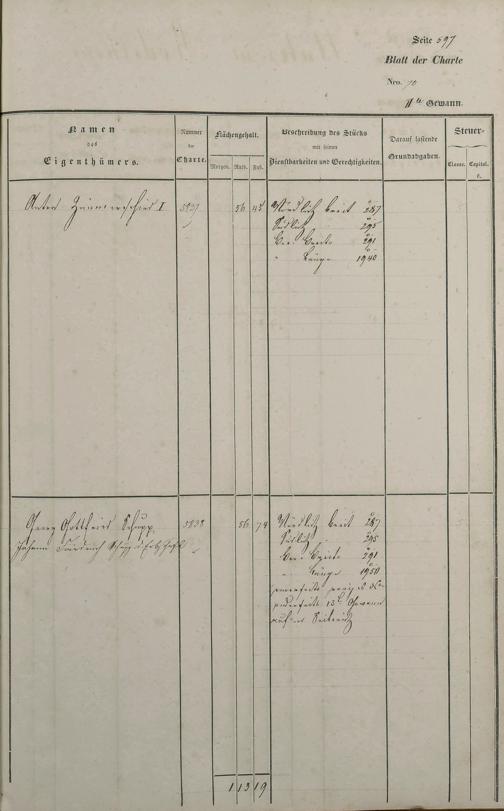 Seite 597
Blatt der Charte
Nro. 70
II te Gewann.
Namen
des
Eigenthümers.
Nummer
der
Charte.
Flächengehalt.
Morgen. Ruth. Fuß.
Beschreibung des Stücks
mit seinen
Dienstbarkeiten und Gerechtigkeiten.
Darauf haftende
Grundabgaben.
Steuer-
Classe. Capital.
Anton Zimmerschied I 5837 56 45 Nördlich breit 287
Südlich 295
291
" Länge 1940
Georg Gottfried Schupp 5838 56 74 Nördlich breit 287
Johann Friedrich Südlich 295
291
" Länge 1950
Gewann
1 13 19